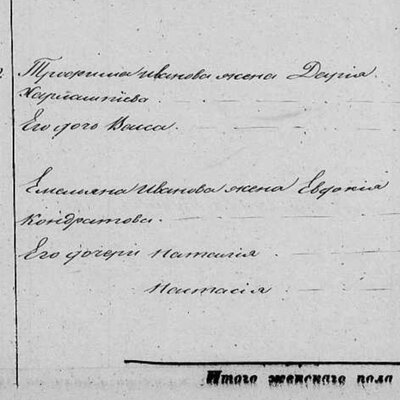 Трофима Иванова жена Дарія
Харлампіева.
Его дочь Васса.
Емельяна Иванова жена Евдокія
Кондратова.
Его дочери Наталія.
Настасія
Итого женскаго пола